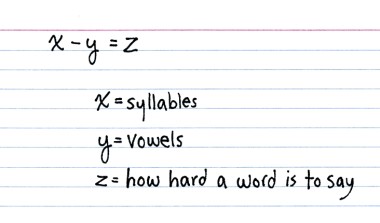 x - y = z
x = syllables
y = vowels
z = how hard a word is to say